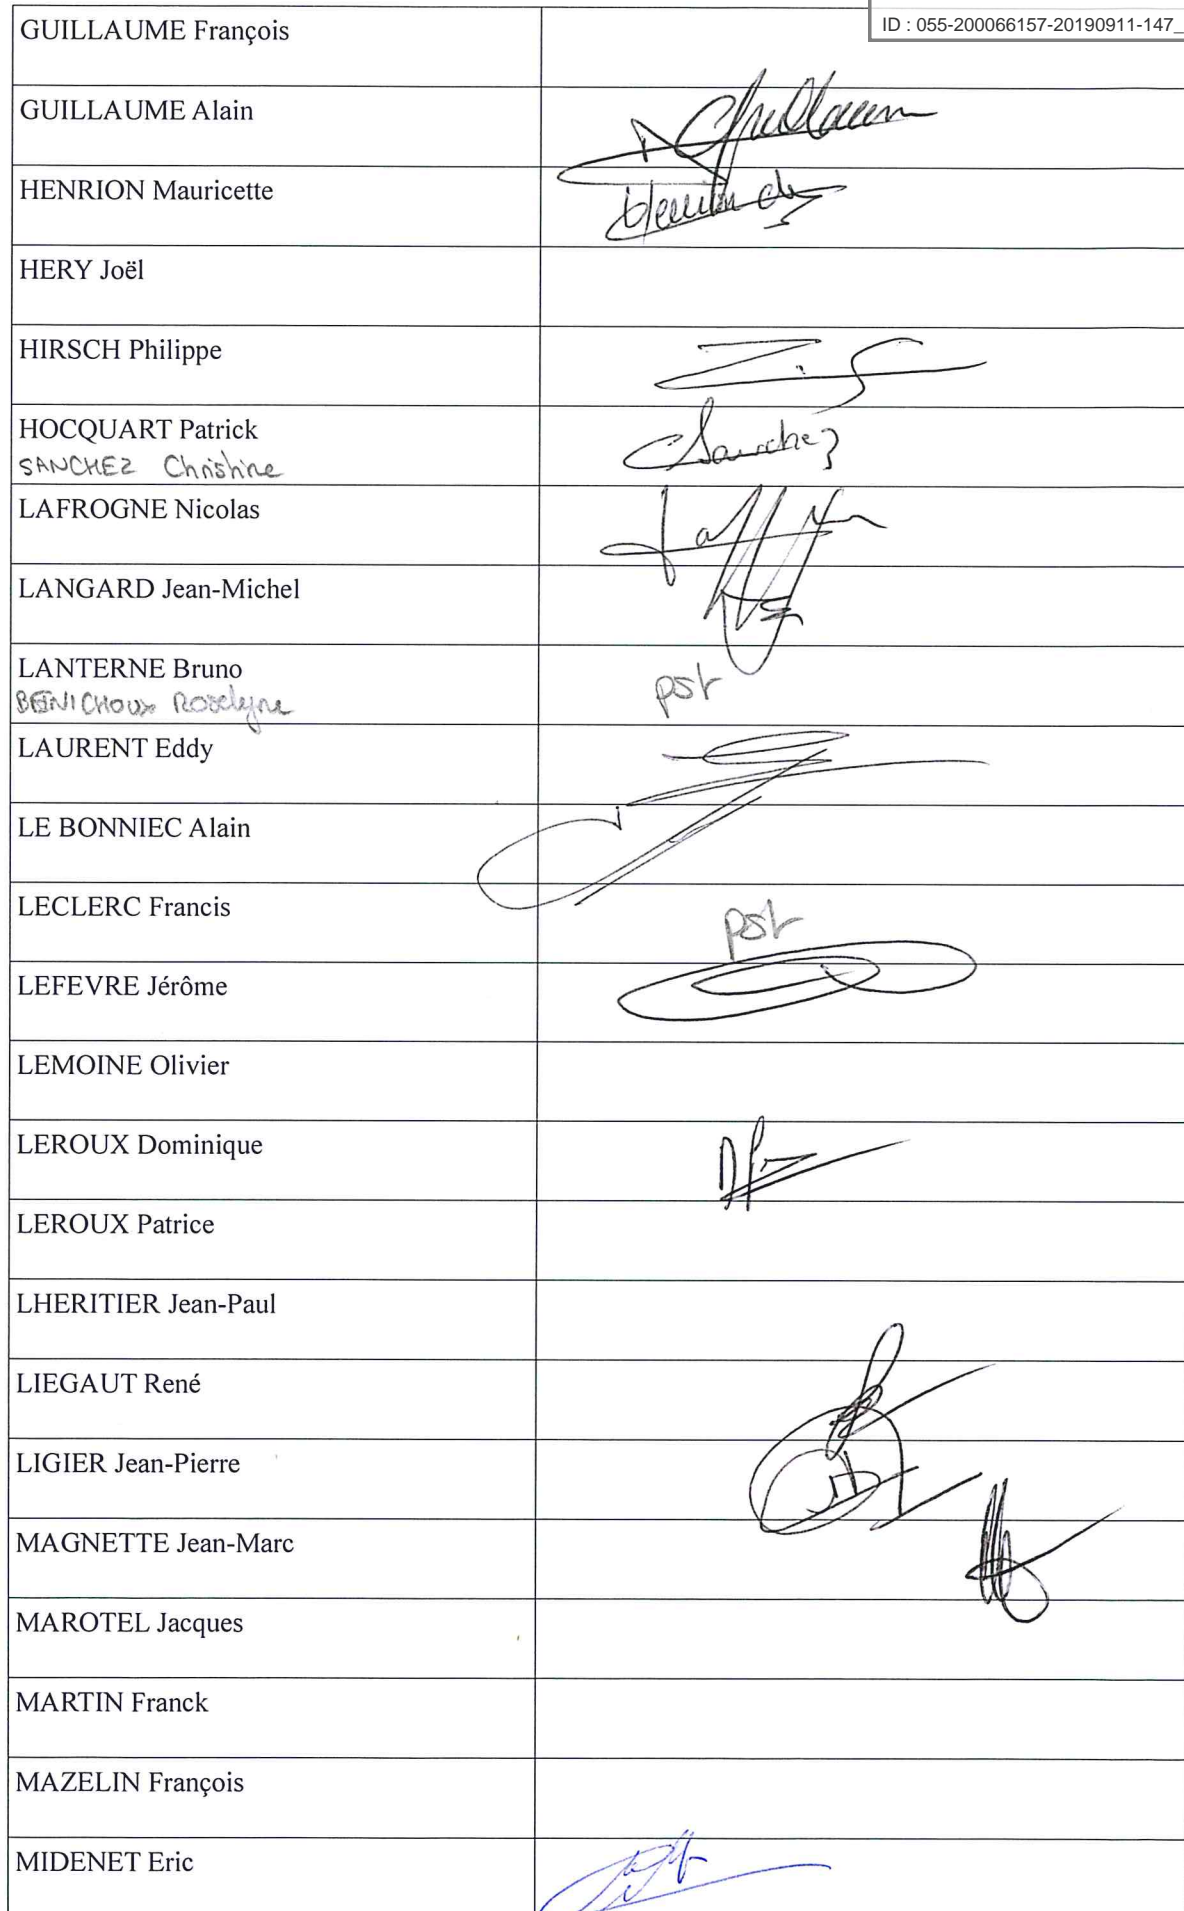 ID : 055-200066157-20190911-147_
GUILLAUME François
GUILLAUME Alain
HENRION Mauricette
HERY Joël
HIRSCH Philippe
HOCQUART Patrick
SANCHEZ Christine
Sanchez
LAFROGNE Nicolas
LANGARD Jean-Michel
LANTERNE Bruno
pst
BENICHOUX Roselyne
LAURENT Eddy
LE BONNIEC Alain
LECLERC Francis
pst
LEFEVRE Jérôme
LEMOINE Olivier
LEROUX Dominique
LEROUX Patrice
LHERITIER Jean-Paul
LIEGAUT René
LIGIER Jean-Pierre
MAGNETTE Jean-Marc
MAROTEL Jacques
MARTIN Franck
MAZELIN François
MIDENET Eric